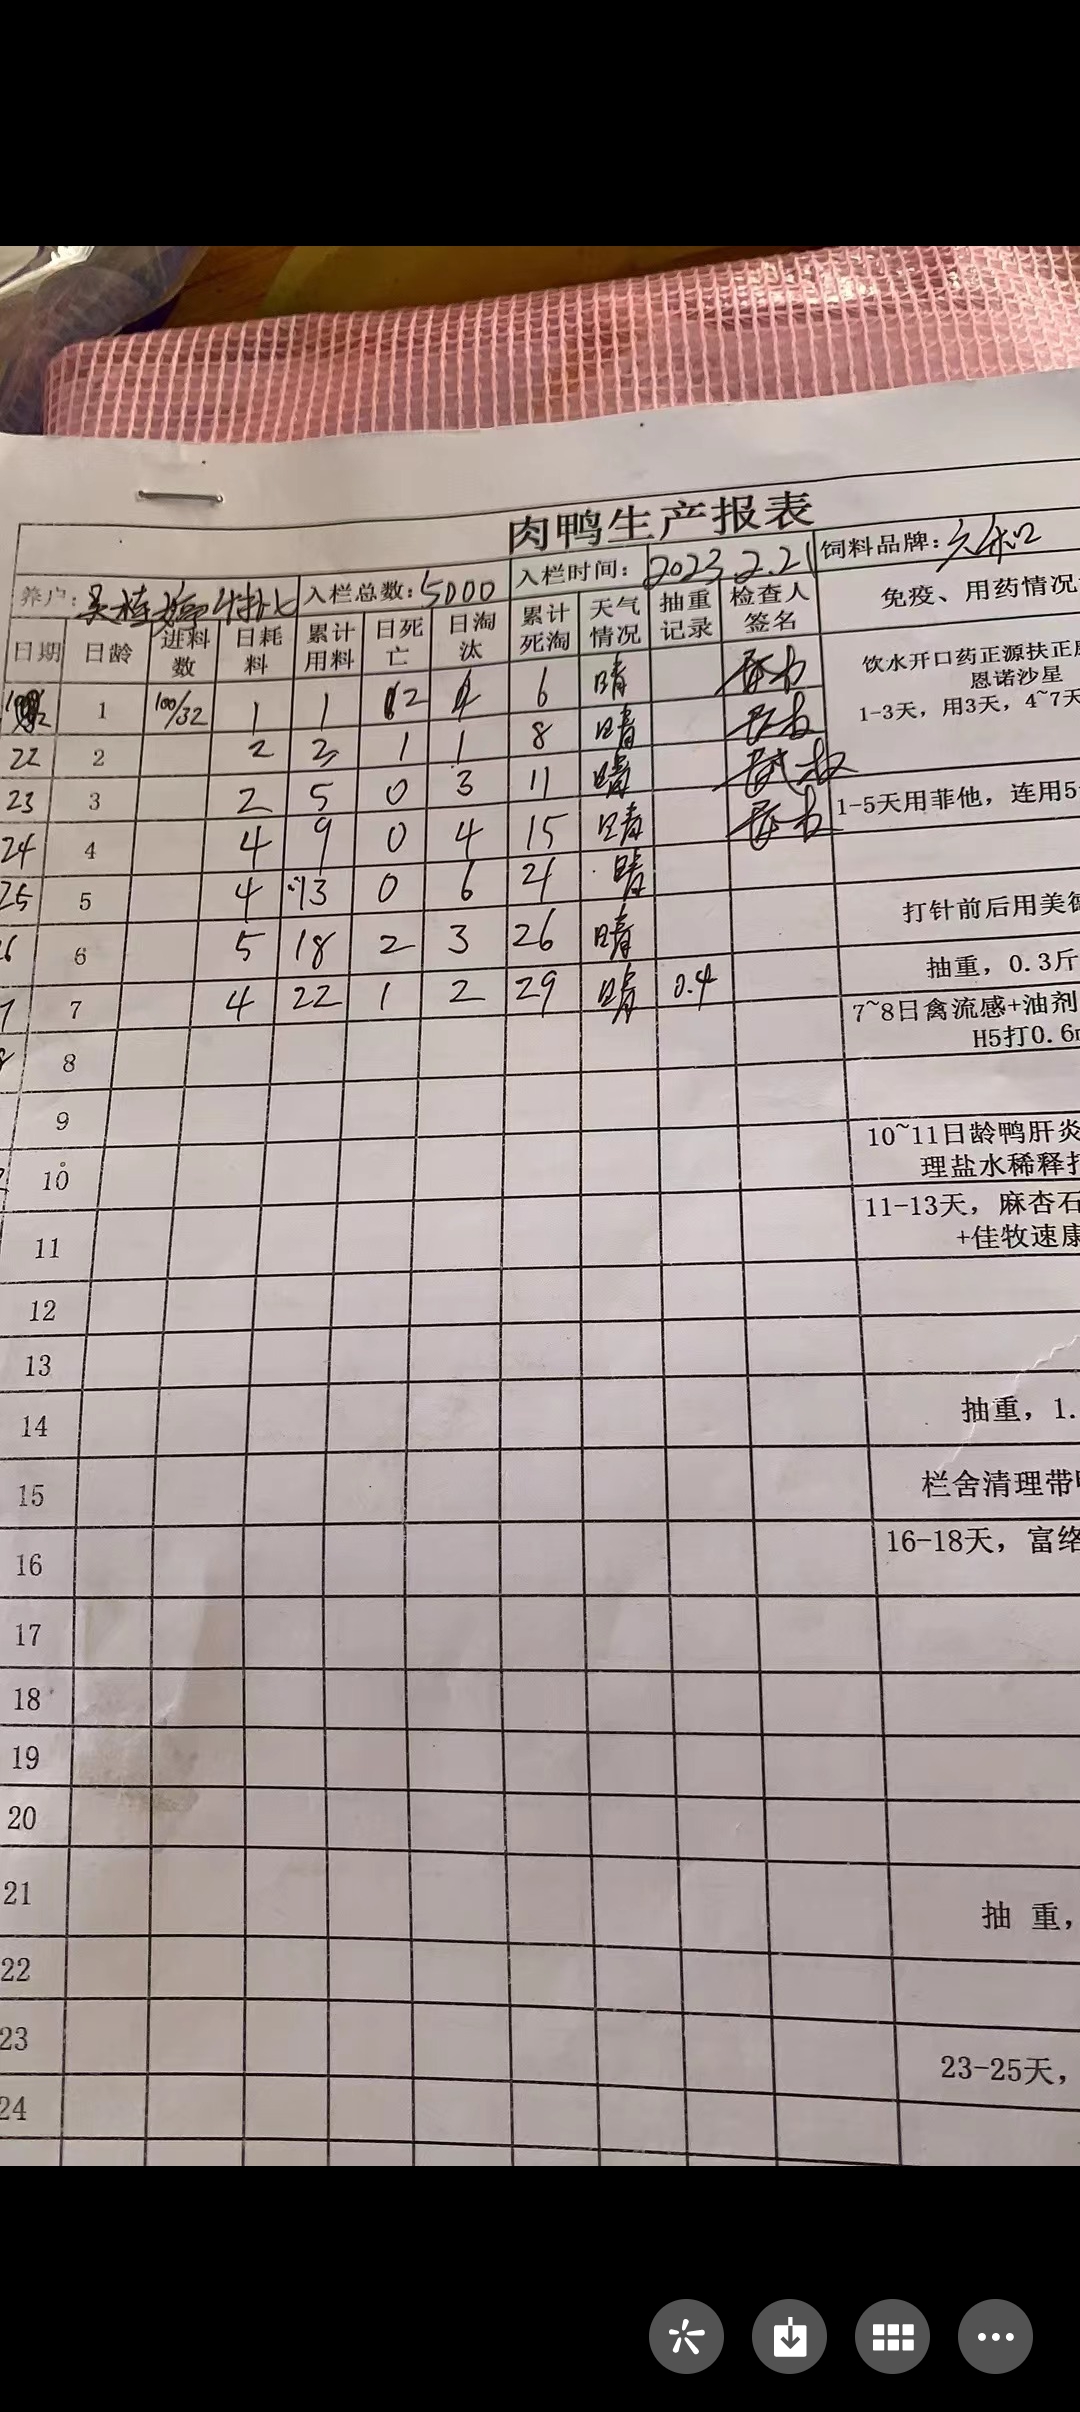 肉鸭生产报表
养户: 入栏总数:5000 入栏时间: 2023.2.21 饲料品牌:
日期 日龄 进料数 日耗料 累计用料 日死亡 日淘汰 累计死淘 天气情况 抽重记录 检查人签名 免疫、用药情况
1 100/32 1 1 2 4 6 晴 饮水开口药正源扶正
恩诺沙星
1-3天，用3天，4~7天
22 2 2 3 1 1 8 晴
23 3 2 5 0 3 11 晴 1-5天用菲他，连用5
24 4 4 9 0 4 15 晴
25 5 4 13 0 6 21 晴
6 6 5 18 2 3 26 晴 打针前后用美
抽重，0.3斤
7 7 4 22 1 2 29 晴 0.4 7~8日禽流感+油剂
H5打0.6
8 8
9
10 10~11日龄鸭肝炎
理盐水稀释打
11 11-13天，麻杏石
+佳牧速康
12
13
14 抽重，1.
15 栏舍清理带
16 16-18天，富络
17
18
19
20
21 抽 重，
22
23 23-25天，
24